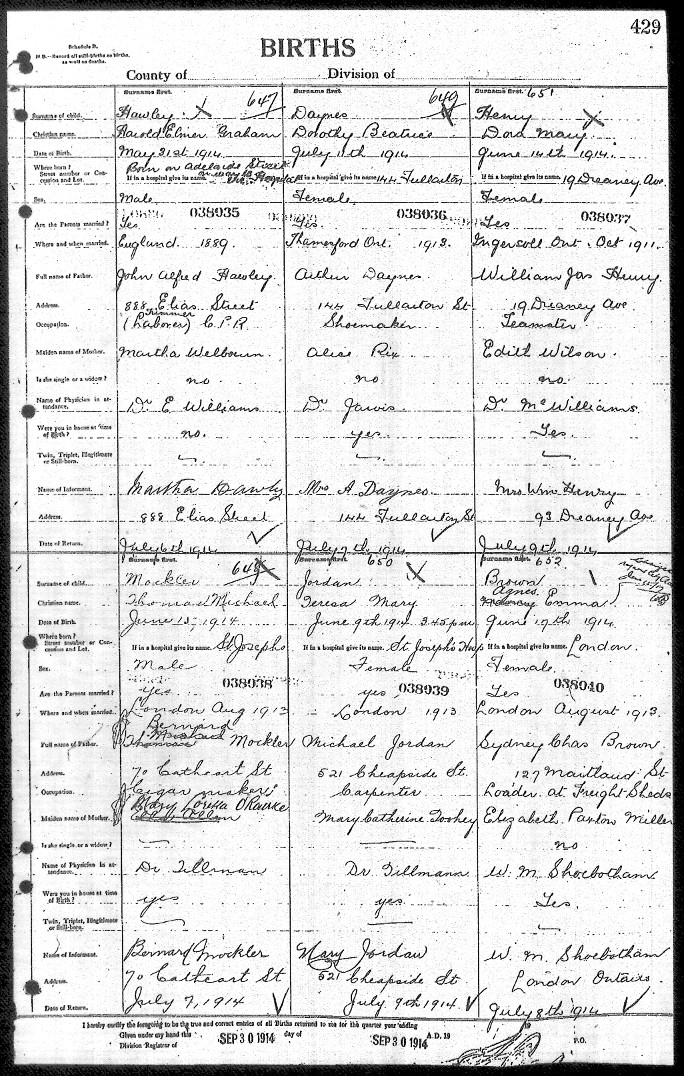 429
Schedule B.
N. B.—Record all still-births as births,
as well as deaths.
BIRTHS
County of
Division of
Surname first. 647
Surname first. 649
Surname first. 651
Surname of child. Hawley Daynes Henry
Christian name. Harold Elmer Graham Dorothy Beatrice Dora Mary
Date of Birth. May 31st 1914 July 1st 1914 June 14th 1914.
Where born? Born on Adelaide Street
Street number or Concession and Lot. If in a hospital give its name. on way to Vic. Hospital If in a hospital give its name. 144 Fullarton If in a hospital give its name. 19 Dreaney Ave.
Sex. Male Female Female
038035 038036 038037
Are the Parents married? Yes Yes. Yes
Where and when married. England 1889. Thamesford Ont. 1913. Ingersoll Ont. Oct 1911.
Full name of Father. John Alfred Hawley Arthur Daynes William Jas Henry
Address. 888 Elias Street 144 Fullarton St 19 Dreaney Ave
Trimmer
Occupation. (Laborer) C.P.R. Shoemaker Teamster
Maiden name of Mother. Martha Welbourn. Alice Rix Edith Wilson.
Is she single or a widow? no no no.
Name of Physician in attendance. Dr E Williams Dr Jarvis. Dr McWilliams.
Were you in house at time of Birth? no. yes. Yes.
Twin, Triplet, Illegitimate or Still-born.
Name of Informant. Martha Hawley Mrs A Daynes. Mrs Wm Henry
Address. 888 Elias Street 144 Fullarton St 93 Dreaney Ave
Date of Return. July 6th 1914 July 7th 1914 July 9th 1914
Surname first. 648
Surname first. 650
Surname first. 652
Surname of child. Mockler Jordan Brown
Agnes
Christian name. Thomas Michael Teresa Mary Emma
Date of Birth. June 15, 1914 June 9th 1914 3.45 p.m June 19th 1914.
Where born?
Street number or Concession and Lot. If in a hospital give its name. St Josephs If in a hospital give its name. St Joseph's Hosp If in a hospital give its name. London.
Sex. Male Female Female.
038038 038039 038040
Are the Parents married? yes yes Yes
Where and when married. London Aug 1913 London 1913. London August 1913.
Bernard
Michael
Full name of Father. Thomas Mockler Michael Jordan Sydney Chas Brown
Address. 70 Cathcart St 521 Cheapside St. 127 Maitland St
Occupation. Cigar maker Carpenter Loader at Freight Sheds
Mary Loretta O'Rourke
Maiden name of Mother. Mary Catherine Toohey Elizabeth Paxton Miller
Is she single or a widow? no
Name of Physician in attendance. Dr Tillman Dr. Tillmann W. M. Shoebotham
Were you in house at time of Birth? yes yes Yes.
Twin, Triplet, Illegitimate or Still-born.
Name of Informant. Bernard Mockler Mary Jordan W. M. Shoebotham
Address. 70 Cathcart St 521 Cheapside St. London Ontario.
Date of Return. July 7, 1914 July 9th 1914 July 8th 1914
I hereby certify the foregoing to be the true and correct entries of all Births returned to me for the quarter year ending 19
Given under my hand this SEP 30 1914 day of SEP 30 1914 A.D. 19
Division Registrar of P.O.